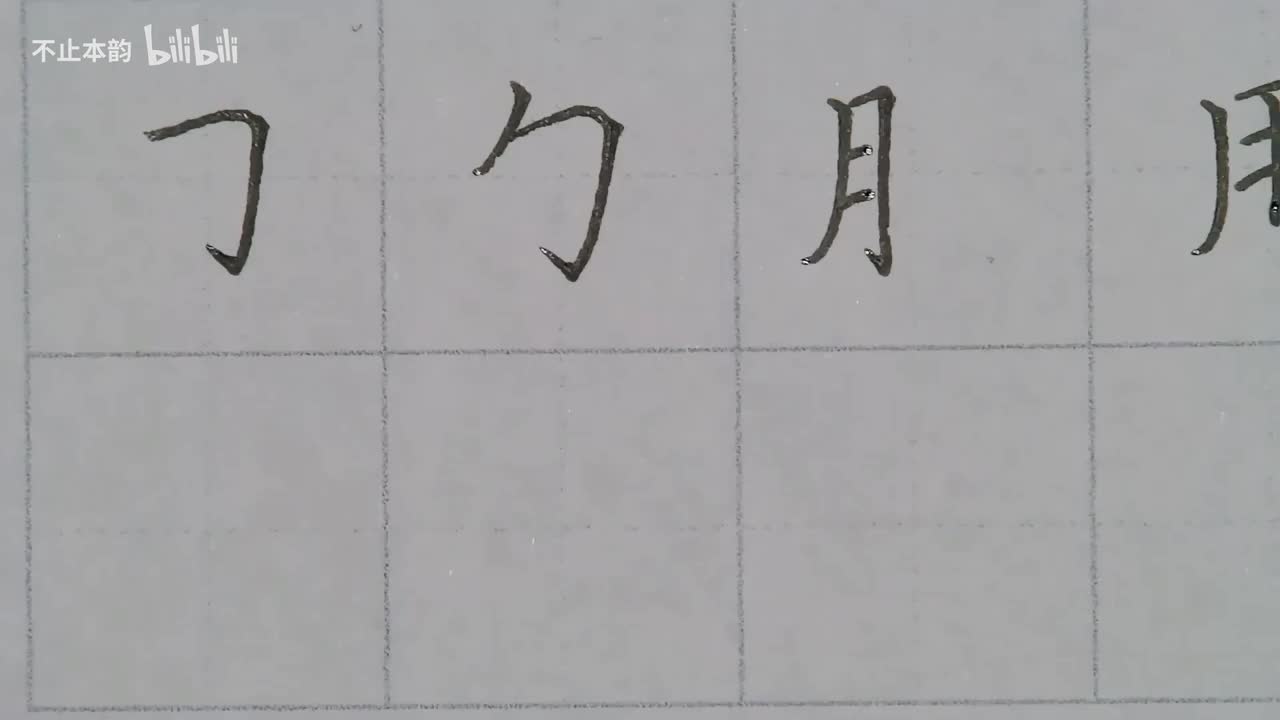 不止本韵 bilibili
𠃌 勹 月 用